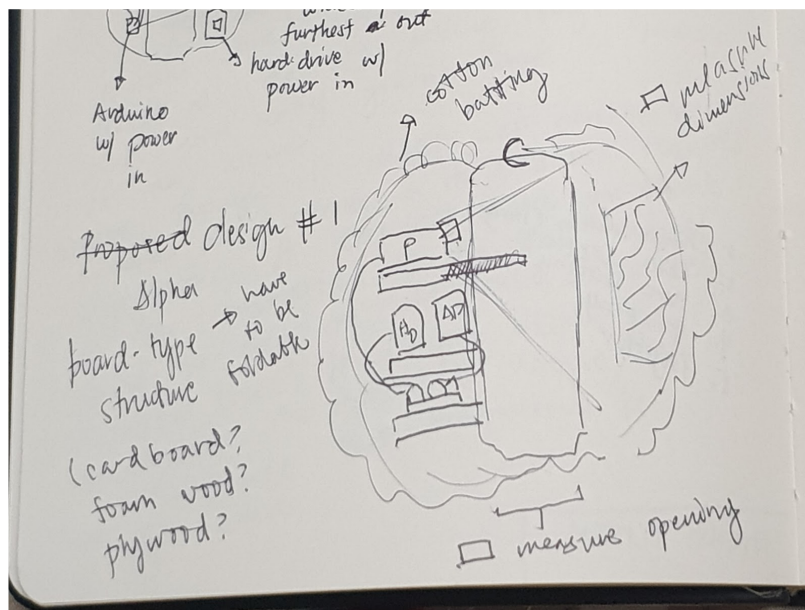 furthest out
hard-drive w/
power in
Arduino
w/ power
in
cotton
batting
measure
dimensions
Proposed design #1
Alpha
board-type → have
to be
foldable
structure
(cardboard?
foam wood?
plywood?
P
HD
measure opening